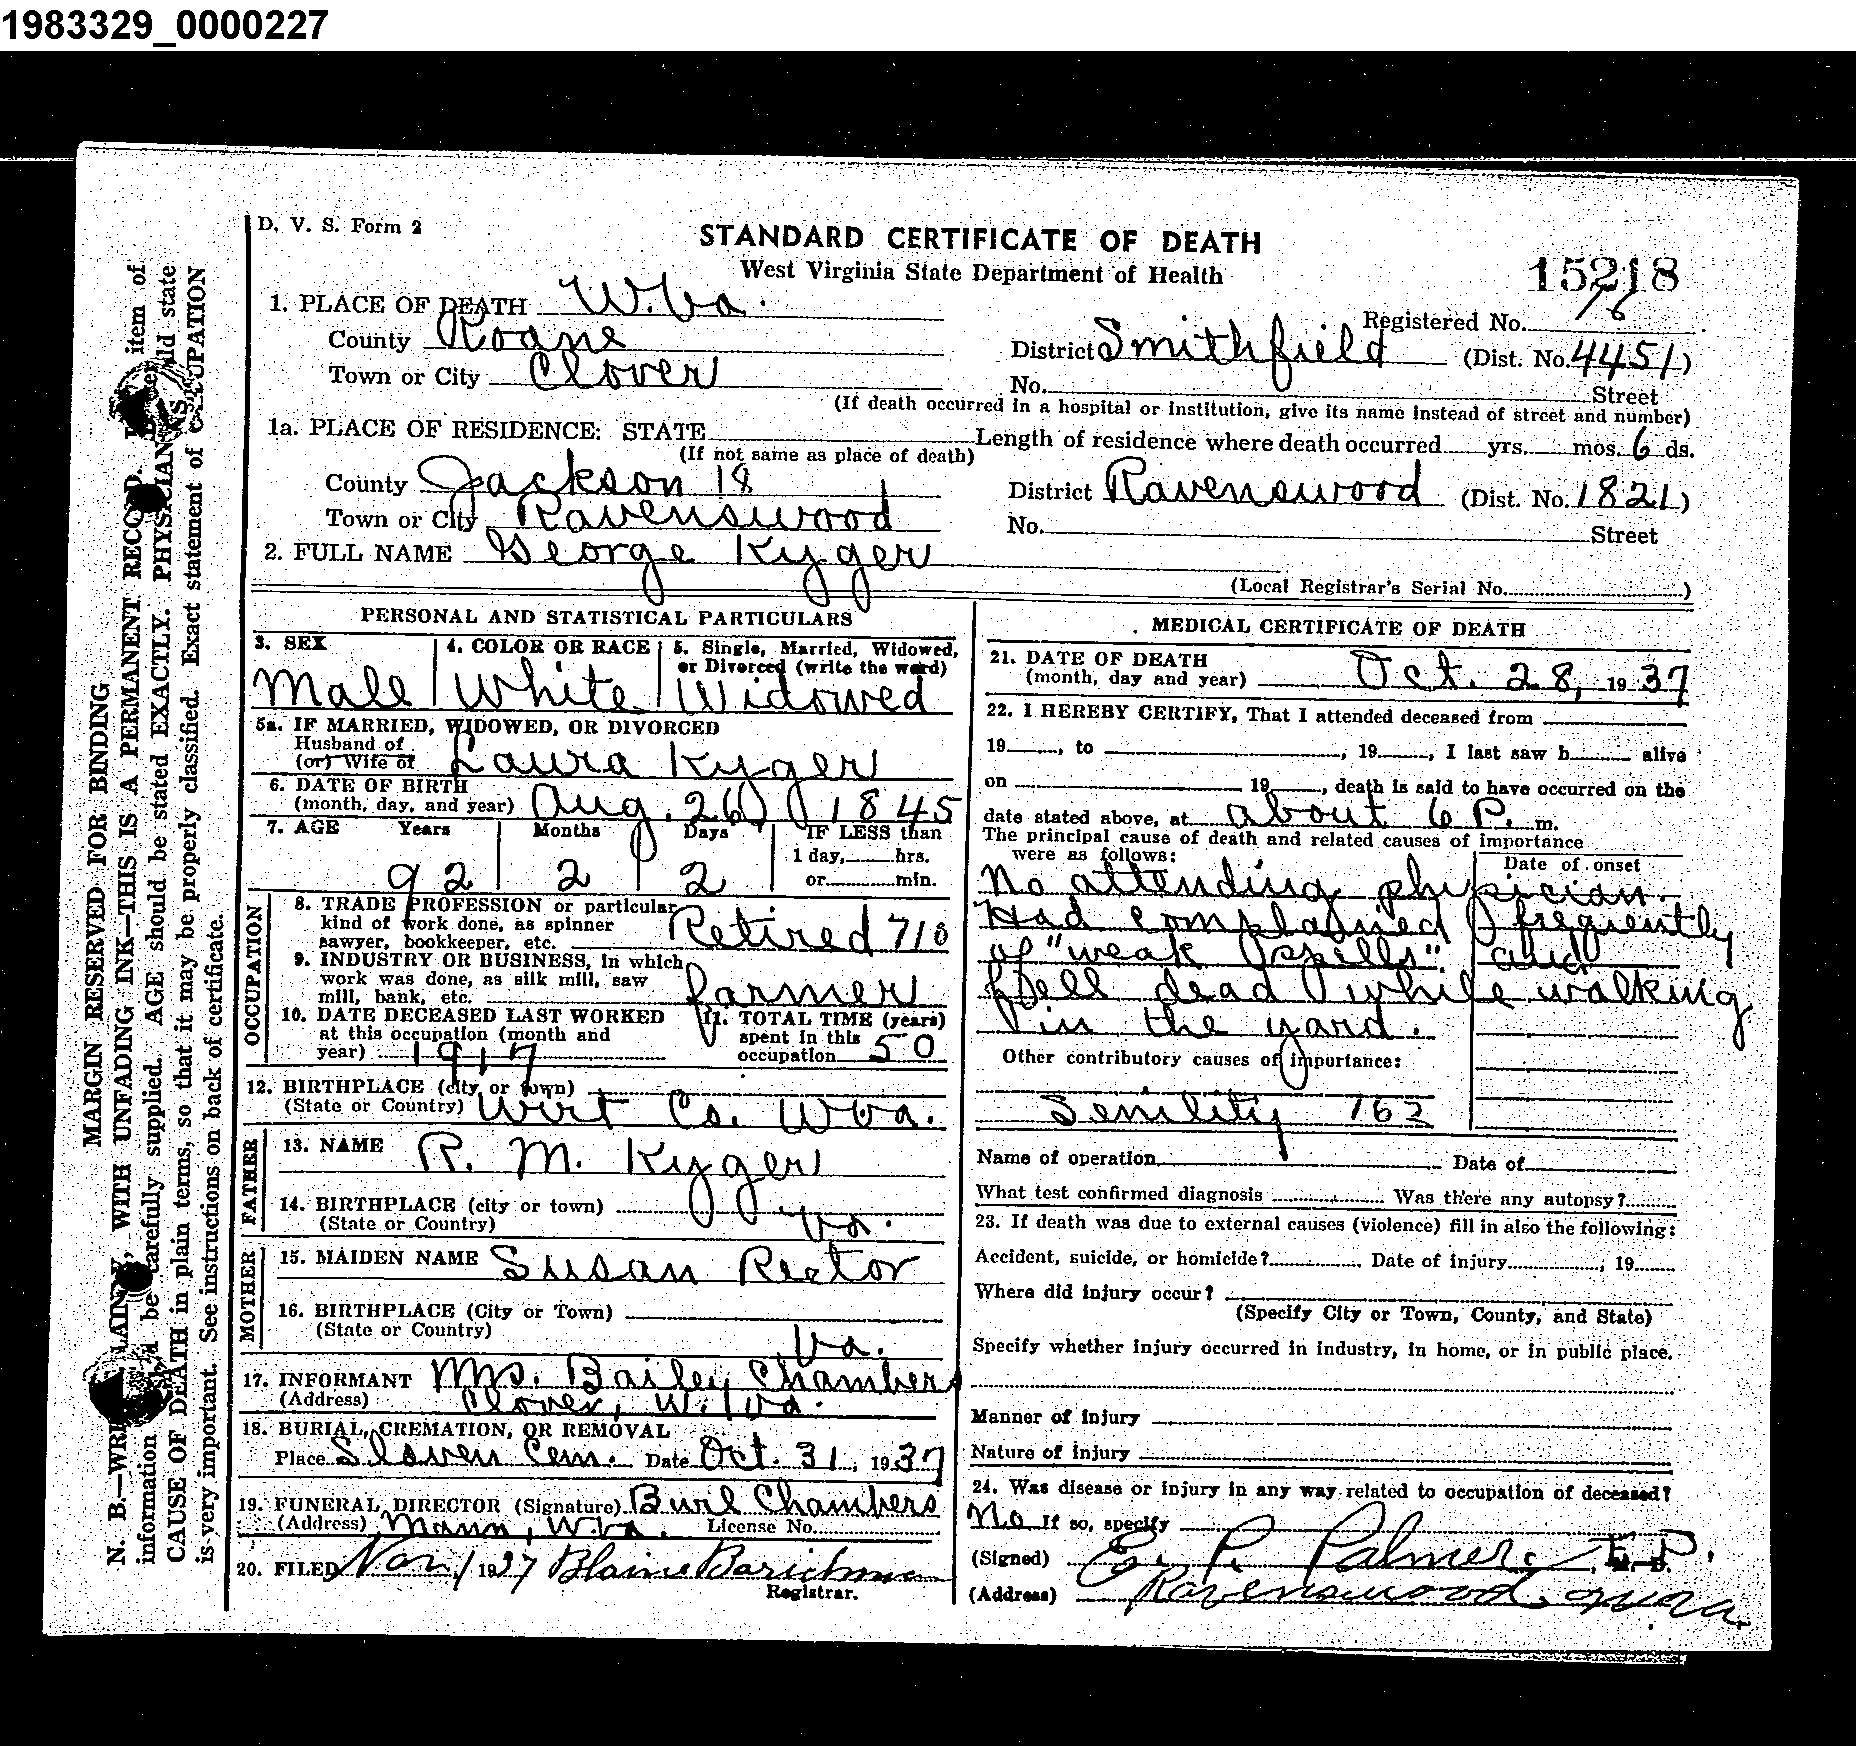 1983329_0000227
D. V. S. Form 2
STANDARD CERTIFICATE OF DEATH
West Virginia State Department of Health
15218
1. PLACE OF DEATH W.Va.
Registered No. 76
County Roane
District Smithfield (Dist. No. 4451)
Town or City Clover
No. Street
(If death occurred in a hospital or institution, give its name instead of street and number)
1a. PLACE OF RESIDENCE: STATE
Length of residence where death occurred yrs. mos. 6 ds.
(If not same as place of death)
County Jackson 18
District Ravenswood (Dist. No. 1821)
Town or City Ravenswood
No. Street
2. FULL NAME George Kyger
(Local Registrar's Serial No. )
PERSONAL AND STATISTICAL PARTICULARS
3. SEX 4. COLOR OR RACE 5. Single, Married, Widowed,
or Divorced (write the word)
Male White Widowed
5a. IF MARRIED, WIDOWED, OR DIVORCED
Husband of
(or) Wife of Laura Kyger
6. DATE OF BIRTH
(month, day, and year) Aug. 26 1845
7. AGE Years Months Days IF LESS than
1 day, hrs.
92 2 2 or min.
OCCUPATION
8. TRADE PROFESSION or particular
kind of work done, as spinner
sawyer, bookkeeper, etc. Retired 710
9. INDUSTRY OR BUSINESS, in which
work was done, as silk mill, saw
mill, bank, etc. farmer
10. DATE DECEASED LAST WORKED
at this occupation (month and
year) 1917
11. TOTAL TIME (years)
spent in this
occupation 50
12. BIRTHPLACE (city or town)
(State or Country) Wirt Co. W Va.
FATHER
13. NAME R. M. Kyger
14. BIRTHPLACE (city or town)
(State or Country) Va.
MOTHER
15. MAIDEN NAME Susan Rector
16. BIRTHPLACE (City or Town)
(State or Country) Va.
17. INFORMANT Mrs. Bailey Chambers
(Address) Clover, W. Va.
18. BURIAL, CREMATION, OR REMOVAL
Place Cem. Date Oct. 31, 1937
19. FUNERAL DIRECTOR (Signature) Burl Chambers
(Address) Mann, W.Va. License No.
20. FILED Nov. 1 1937 Blaine
Registrar.
MEDICAL CERTIFICATE OF DEATH
21. DATE OF DEATH
(month, day and year) Oct. 28, 1937
22. I HEREBY CERTIFY, That I attended deceased from
19 , to , 19 , I last saw h alive
on 19 , death is said to have occurred on the
date stated above, at about 6 P. m.
The principal cause of death and related causes of importance
were as follows: Date of onset
No attending physician.
Had complained frequently
of "weak spells" and
fell dead while walking
in the yard.
Other contributory causes of importance:
Senility 162
Name of operation Date of
What test confirmed diagnosis Was there any autopsy?
23. If death was due to external causes (violence) fill in also the following:
Accident, suicide, or homicide? Date of injury , 19
Where did injury occur?
(Specify City or Town, County, and State)
Specify whether injury occurred in industry, in home, or in public place.
Manner of injury
Nature of injury
24. Was disease or injury in any way related to occupation of deceased?
No If so, specify
(Signed) E. P. Palmer
(Address) Ravenswood
MARGIN RESERVED FOR BINDING
N. B.—WRITE PLAINLY, WITH UNFADING INK—THIS IS A PERMANENT RECORD. item of
information be carefully supplied. AGE should be stated EXACTLY. PHYSICIANS state
CAUSE OF DEATH in plain terms, so that it may be properly classified. Exact statement of OCCUPATION
is very important. See instructions on back of certificate.